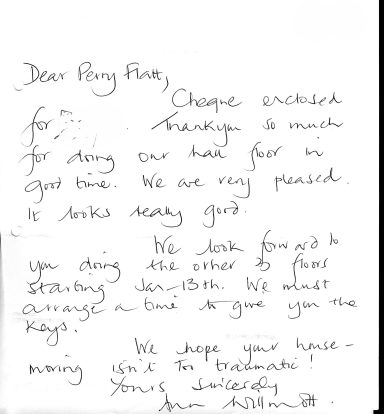 Dear Perry Flatt,
Cheque enclosed
for . Thankyou so much
for doing our hall floor in
good time. We are very pleased.
It looks really good.
We look forward to
you doing the other 3 floors
starting Jan 13th. We must
arrange a time to give you the
keys.
We hope your house-
moving isn't too traumatic!
Yours sincerely
Ann Willmott.